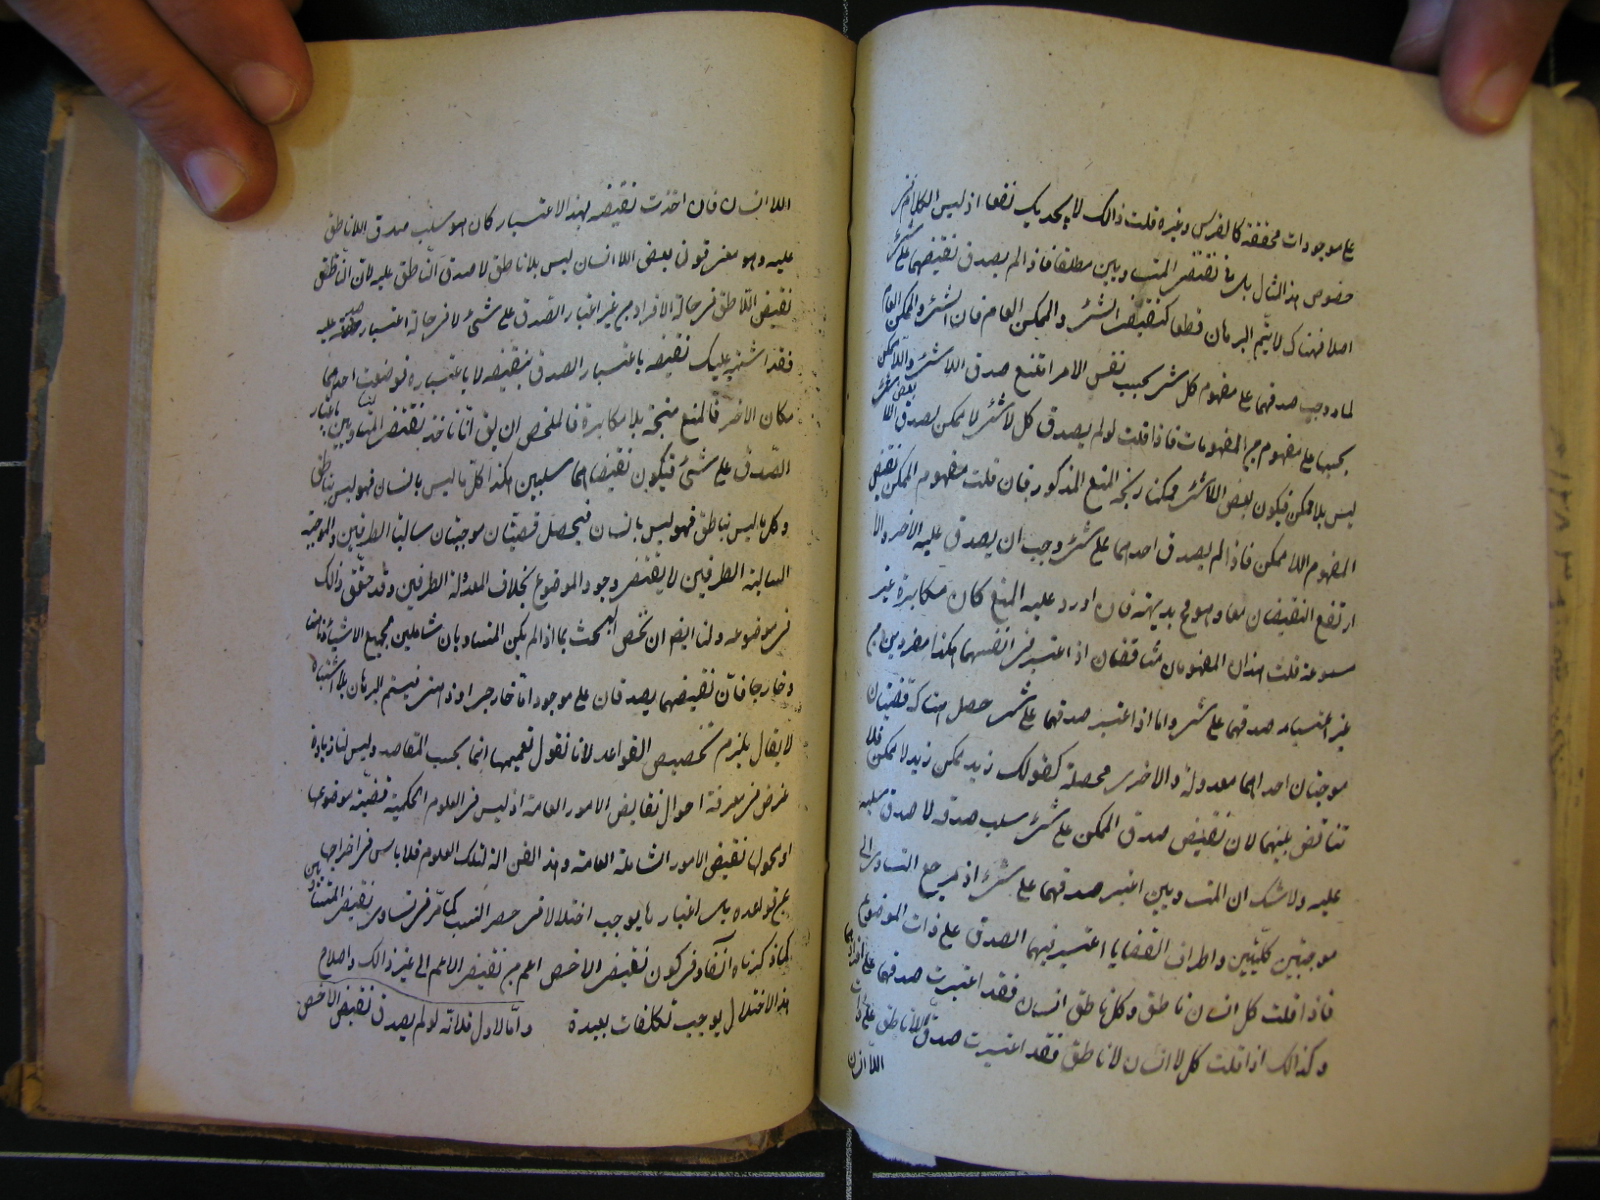 على موجودات محققة كالفرس وغيره قلت ذالك لا يجديك نفعا اذ ليس الكلام فى
خصوص هذا المثال بل فى نقيضى المتساويين مطلقا فاذا لم يصدق نقيضهما على شئ
اصلا فهناك لا يتم البرهان قطعا كنقيضى الشئ والممكن العام فان الشئ والممكن العام
لما وجب صدقهما على مفهوم كل شئ بحسب نفس الامر امتنع صدق اللا شئ واللا ممكن
بحسبها على مفهوم من المفهومات فاذا قلت لو لم يصدق كل لا شئ لا ممكن لصدق اللا بعض شئ
ليس بلا ممكن فيكون بعض اللا شئ ممكنا يتجه المنع المذكور فان قلت مفهوم الممكن نقيض
المفهوم اللا ممكن فاذا لم يصدق احدهما على شئ وجب ان يصدق عليه الاخر والا
ارتفع النقيضان معا وهو مح بديهة فان اورد عليه المنع كان مكابرة غير
مسموعة قلت هذان المفهومان متناقضان اذا اعتبر فى انفسهما هكذا مفردين من
غير اعتبار صدقهما على شئ واما اذا اعتبر صدقهما على شئ حصل هناك قضيتان
موجبتان احداهما معدولة والاخرى محصلة كقولك زيد ممكن زيد لا ممكن فلا
تناقض بينهما لان نقيض صدق الممكن على شئ سلب صدقه لا صدق سلبه
عليه ولا شك ان المتساويين اعتبر صدقهما على شئ اذ مرجع التساوى الى
موجبتين كليتين واطراف القضايا اعتبر فيها الصدق على ذات الموضوع
فاذا قلت كل انسان ناطق وكل ناطق انسان فقد اعتبرت صدقهما على
وكذالك اذا قلت كل لا انسان لا ناطق فقد اعتبرت صدق اللا ناطق على
اللا انسان
اللا انسان فان اخذت نقيضه بهذا الاعتبار كان هو سلب صدق اللا ناطق
عليه وهو معنى قولنا بعض اللا انسان ليس بلا ناطق لا صدق الناطق عليه لان الناطق
نقيض اللا ناطق فى حالة الافراد من غير اعتبار الصدق على شئ لا فى حالة اعتبار صدقه عليه
فقد اشتبه عليك نقيضه باعتبار الصدق بنقيضه لا باعتباره فوضعت احدهما
مكان الاخر فالمنع متجه بلا مكابرة فالملخص ان يق انا ناخذ نقيضى المتساويين باعتبار
الصدق على شئ فيكون نقيضاهما سلبين هكذا كل ما ليس بانسان فهو ليس بناطق
وكل ما ليس بناطق فهو ليس بانسان فيحصل قضيتان موجبتان سالبتا الطرفين والموجبة
السالبة الطرفين لا يقتضى وجود الموضوع بخلاف المعدولة الطرفين وقد حقق ذالك
فى موضوعه ولنا ايضا ان نخص البحث بما اذا لم يكن المتساويان شاملين لجميع الاشياء ذهنا
وخارجا فان نقيضهما يصدقان على موجود اما خارجى او ذهنى فيتم البرهان بلا اشتباه
لا يقال يلزم تخصيص القواعد لانا نقول تعميمها انما بحسب المقاصد وليس لنا زيادة
غرض فى معرفة احوال نقايض الامور العامة اذ ليس فى العلوم الحكمية قضية موضوعها
او محمولها نقيض الامور الشاملة العامة وهذا الفن الة لتلك العلوم فلا باس فى اخراجها
عن قواعده بل اعتبارها يوجب اختلالا فى حصر النسب كما مر فى تساوى نقيضى المتساويين
كما ذكرناه انفا وفى كون نقيض الاخص اعم من نقيض الاعم الى غير ذالك واصلاح
هذا الاختلال يوجب تكلفات بعيدة واما الاول فلانه لو لم يصدق نقيض الاخص